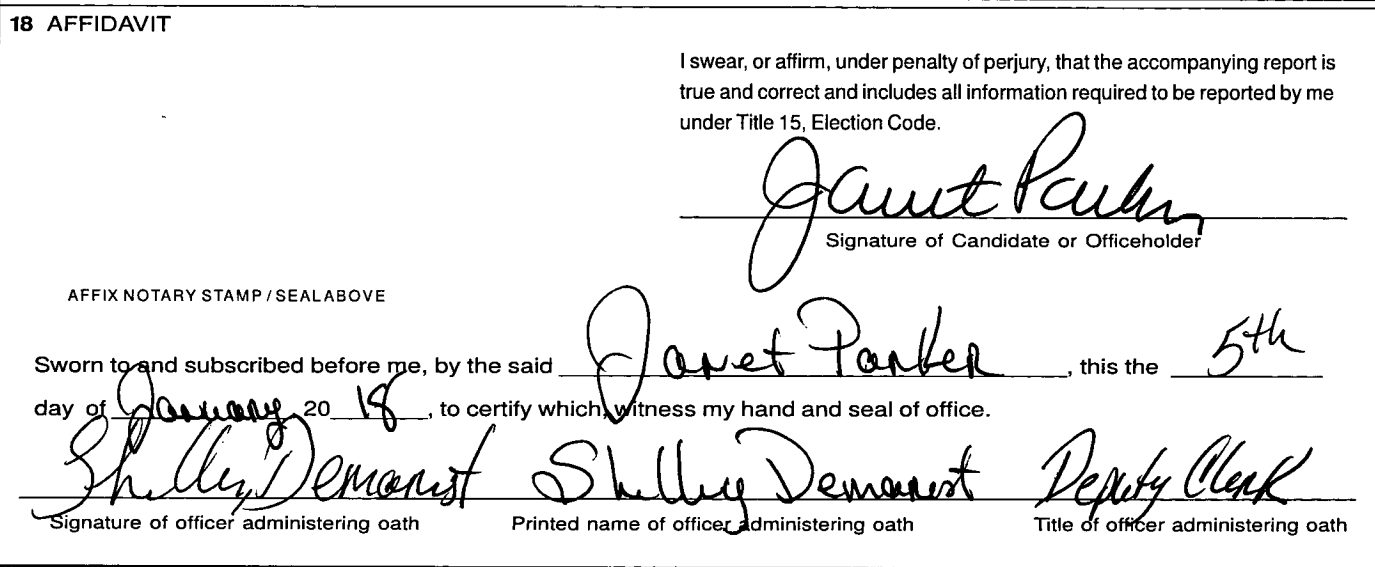 18 AFFIDAVIT
I swear, or affirm, under penalty of perjury, that the accompanying report is
true and correct and includes all information required to be reported by me
under Title 15, Election Code.
Janet Parker
Signature of Candidate or Officeholder
AFFIX NOTARY STAMP / SEAL ABOVE
Sworn to and subscribed before me, by the said Janet Parker, this the 5th
day of January, 20 18, to certify which, witness my hand and seal of office.
Shelley Demarest Shelley Demarest Deputy Clerk
Signature of officer administering oath Printed name of officer administering oath Title of officer administering oath